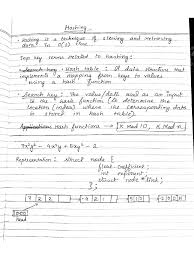 Hashing
Hashing is a technique of storing and retrieving
data in O(1) time
Top key terms related to hashing:
Search key: Hash table: A data structure that
implements a mapping from keys to values
using a hash function
Search key: The value/data used as an input
is the hash function (to determine the
location (index) where the corresponding data
is stored in hash table).
Application: Hash functions → K mod 10, K mod n
7x²y² - 4x²y + 5xy² - 2
Representation: struct node {
float coefficient;
int exponent;
struct node *link;
};
7 2 2
Head